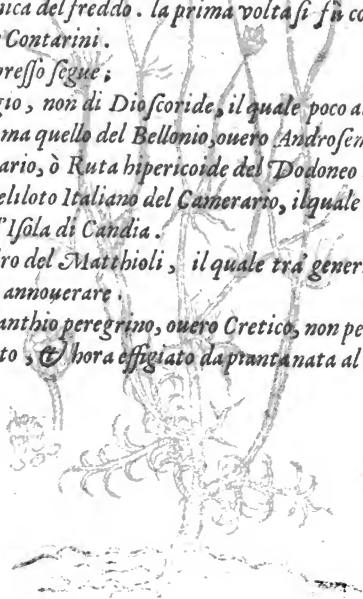 nica del freddo. la prima volta ſi fù co
Contarini.
preſſo ſegue;
gio, non di Dioſcoride, il quale poco a
ma quello del Bellonio, ouero Androſem
ario, ò Ruta hipericoide del Dodoneo
eliloto Italiano del Camerario, ilquale
l'Iſola di Candia.
ro del Matthioli, ilquale tra gener
annouerare.
anthio peregrino, ouero Cretico, non pe
to, & hora effigiato da piantanata al